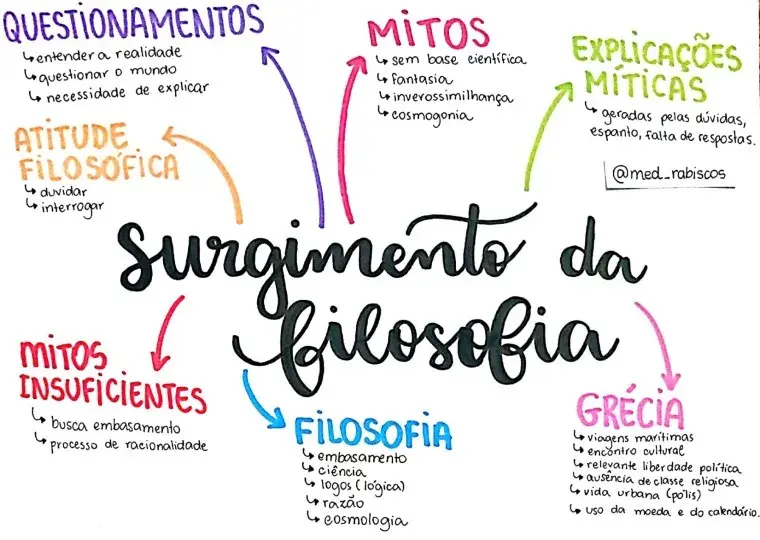 QUESTIONAMENTOS
entender a realidade
questionar o mundo
necessidade de explicar
MITOS
sem base científica
fantasia
inverossimilhança
cosmogonia
EXPLICAÇÕES
MÍTICAS
geradas pelas dúvidas,
espanto, falta de respostas.
@med_rabiscos
ATITUDE
FILOSÓFICA
duvidar
interrogar
surgimento da
filosofia
MITOS
INSUFICIENTES
busca embasamento
processo de racionalidade
FILOSOFIA
embasamento
ciência
logos (lógica)
razão
cosmologia
GRÉCIA
viagens marítimas
encontro cultural
relevante liberdade política
ausência de classe religiosa
vida urbana (pólis)
uso da moeda e do calendário.